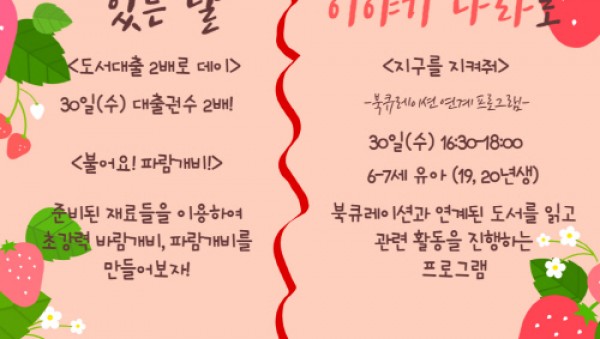 있는 날
<도서대출 2배로 데이>
30일(수) 대출권수 2배!
<불어요! 파람개비!>
준비된 재료들을 이용하여
초강력 바람개비, 파람개비를
만들어보자!
이야기 나라로
<지구를 지켜줘>
-북큐레이션 연계 프로그램-
30일(수) 16:30-18:00
6-7세 유아 (19, 20년생)
북큐레이션과 연계된 도서를 읽고
관련 활동을 진행하는
프로그램